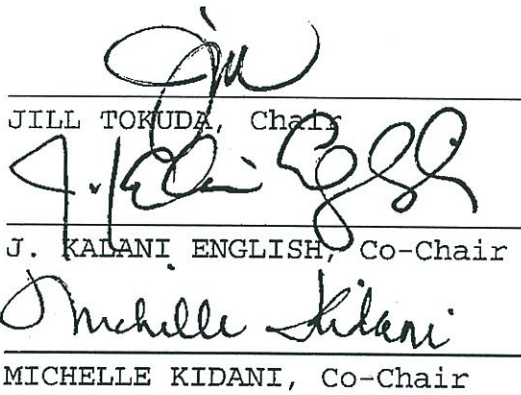 Jill
JILL TOKUDA, Chair
J. Kalani English
J. KALANI ENGLISH, Co-Chair
Michelle Kidani
MICHELLE KIDANI, Co-Chair